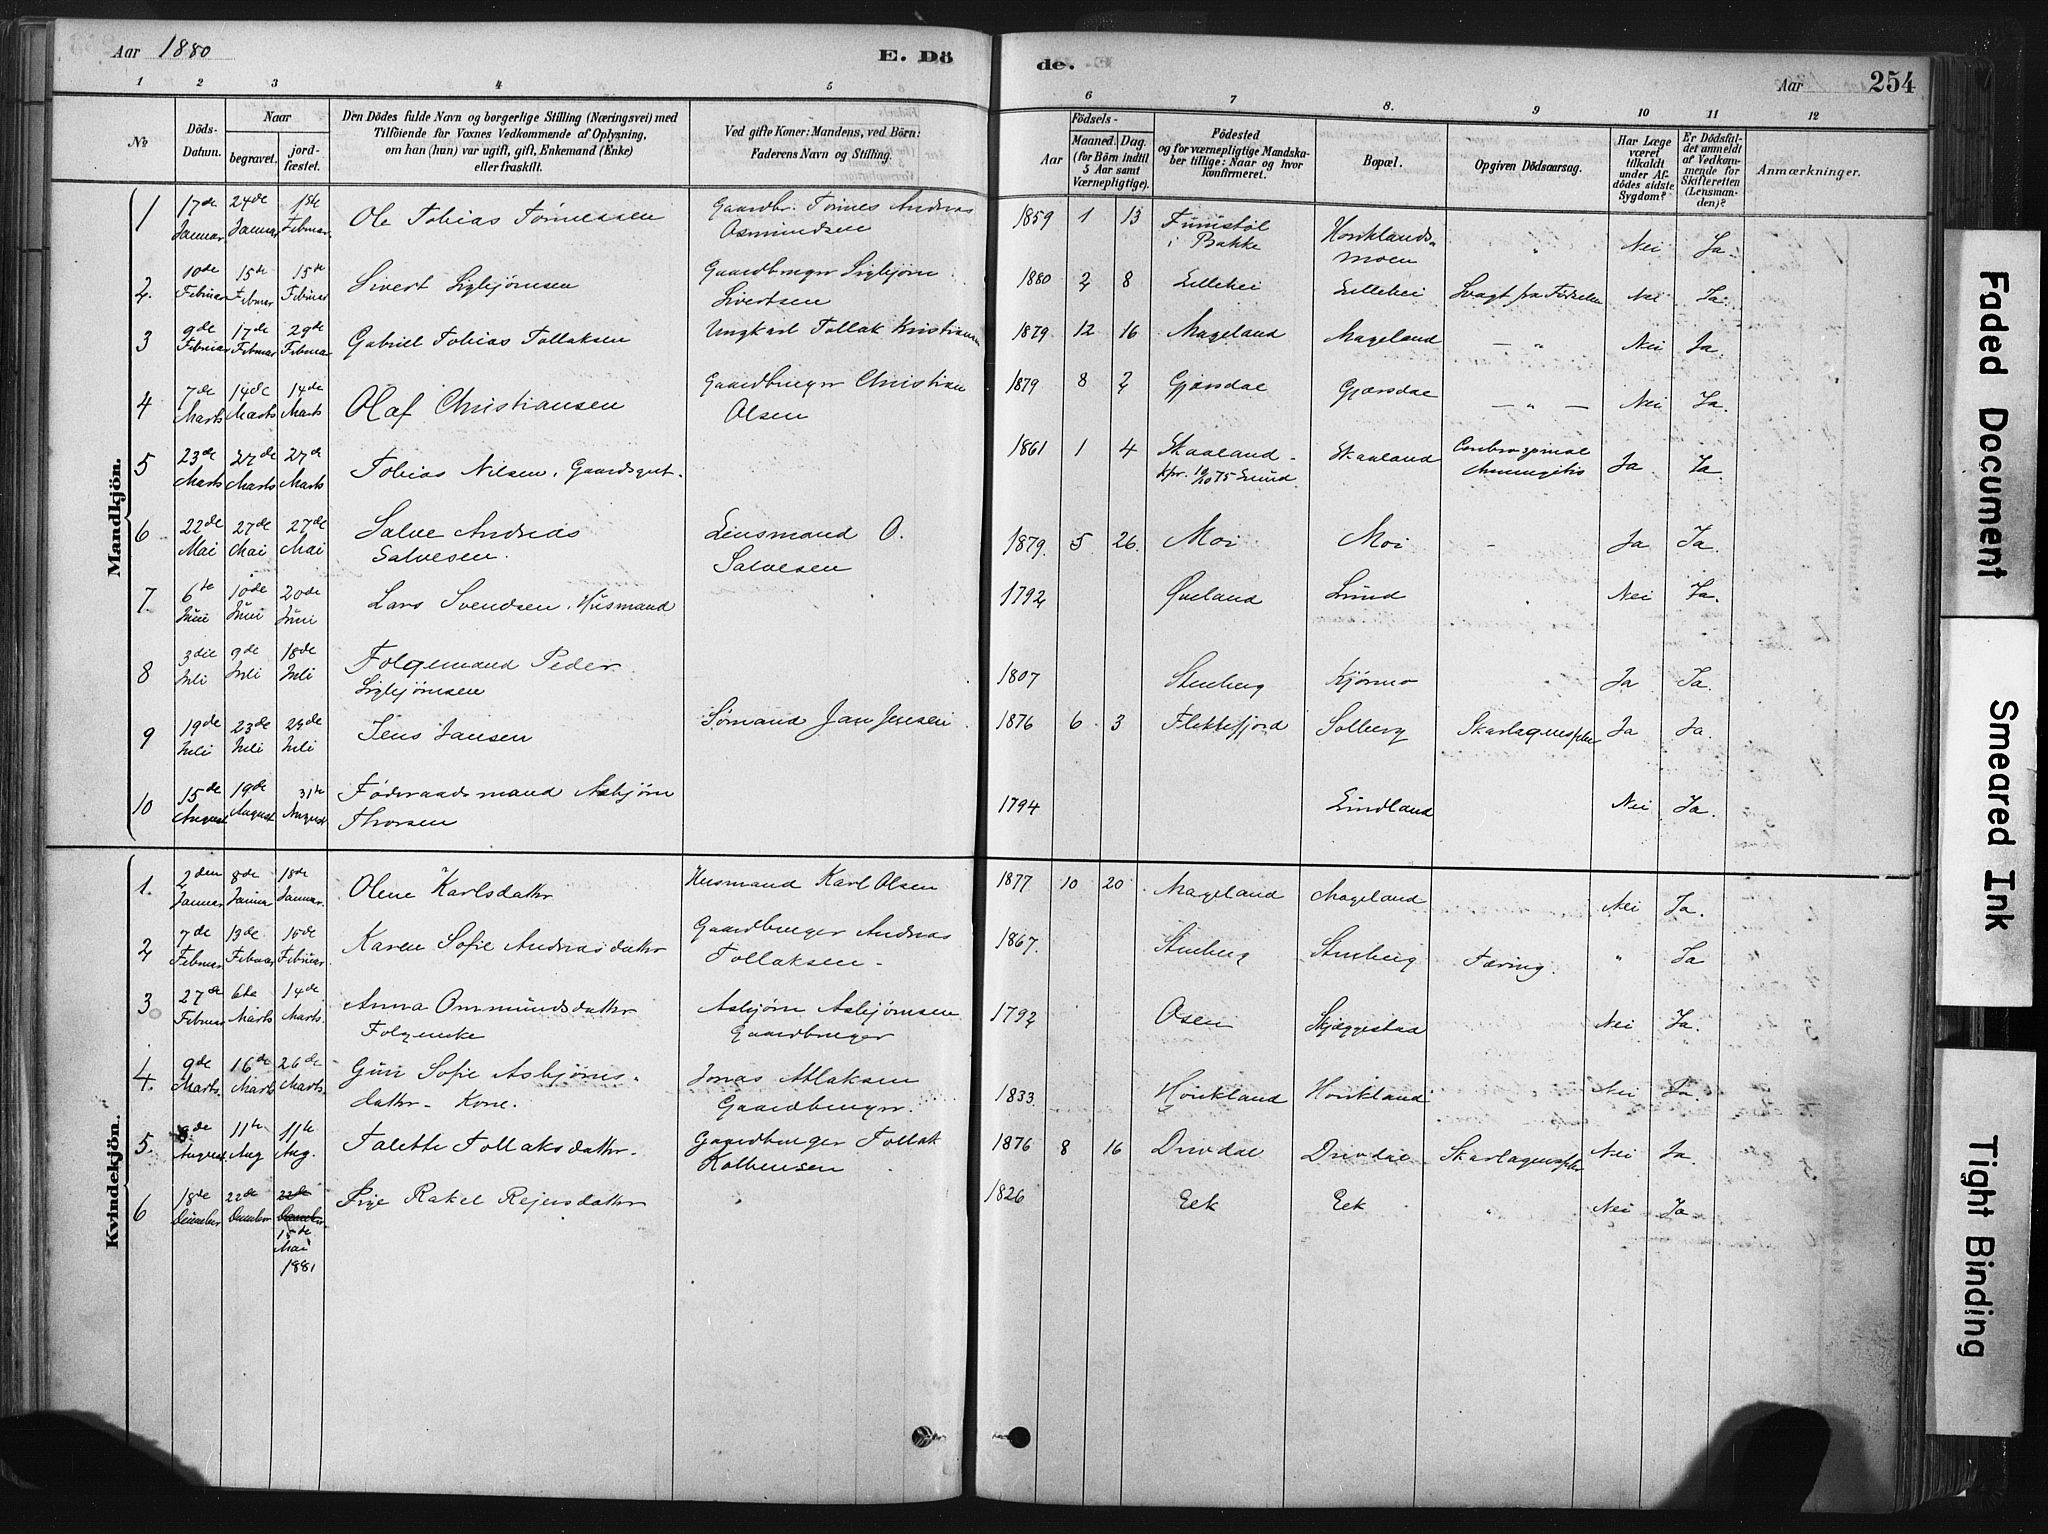 Aar 1880
E. Dö
de.
Aar
254
1 2 3 4 5 6 7 8. 9 10 11 12
No
Döds-Datum.
Naar
begravet.
jord-fæstet.
Den Dödes fulde Navn og borgerlige Stilling (Næringsvei) med
Tilföiende for Voxnes Vedkommende af Oplysning,
om han (hun) var ugift, gift, Enkemand (Enke)
eller fraskilt.
Ved gifte Koner: Mandens, ved Börn:
Faderens Navn og Stilling.
Födsels-
Aar
Maaned. Dag.
(for Börn indtil
5 Aar samt
Værnepligtige).
Födested
og for værnepligtige Mandska-
ber tillige: Naar og hvor
konfirmeret.
Bopæl.
Opgiven Dödsaarsag.
Har Læge
været
tilkaldt
under Af-
dödes sidste
Sygdom?
Er Dödsfal-
det anmeldt
af Vedkom-
mende for
Skifteretten
(Lensman-
den)?
Anmærkninger.
Mandkjön.
1 17de Januar 24de Januar 18 Februar Ole Tobias Tönnessen Gaardbr. Tönnes Andreas Osmundsen 1859 1 13 i Bakke moen " Nei Ja.
2. 10de Februar 15de Februar 15de Februar Sivert Sigbjörnsen Gaardbruger Sigbjörn Sivertsen 1880 2 8 Lillehei Lillehei Svagt fra Födselen Nei Ja.
3 9de Februar 17de Februar 29de Februar Gabriel Tobias Tollaksen Ungkarl Tollak Kristiansen 1879 12 16 Mageland Mageland — " Nei Ja.
4 7de Marts 14de Marts 14de Marts Olaf Christiansen Gaardbruger Christian Olsen 1879 8 2 Gjersdal Gjersdal — " — Nei Ja.
5 23de Marts 27de Marts 27de Marts Tobias Nilsen, Gaardsgut. 1861 1 4 Skaaland Skaaland Ja Ja.
6 22de Mai 27de Mai 27de Mai Salve Andreas Salvesen. Lensmand O. Salvesen 1879. 5 26. Moi Moi - Ja Ja.
7. 6te Juni 10de Juni 20de Juni Lars Svendsen, Husmand 1792 Qveland Lund Nei Ja.
8 3die Juli 9de Juli 18de Juli Folgemand Peder Sigbjörnsen 1807 Stenberg Kjörmo Ja Ja.
9 19de Juli 23de Juli 23de Juli Jens Jansen Sömand Jan Jensen 1876 6 3 Flekkefjord Solberg Skarlagensfeber Ja Ja.
10 15de August 19de August 31te August Föderaadsmand Asbjörn Thorsen 1794 Lindland Nei Ja.
Kvindekjön.
1. 2den Januar 8de Januar 18de Januar. Olene Karlsdattr Husmand Karl Olsen 1877 10 20 Mageland Mageland Nei Ja.
2 7de Februar 13de Februar 15de Februar Karen Sofie Andreasdattr Gaardbruger Andreas Tollaksen - 1867. Stenberg Stenberg Tæring. " Ja
3 27de Februar 6te Marts 14de Marts. Anna Ommundsdattr Folgeenke Asbjörn Asbjörnsen Gaardbruger 1792 Osen Skjæggestad Nei Ja.
4. 9de Marts. 16de Marts 26de Marts. Guri Sofie Asbjörnsdattr - Kone. Jonas Atlaksen Gaardbruger. 1833. Hovkland Hovkland Nei Ja.
5. 8de August. 11te Aug 11te Aug. Talette Tollaksdattr. Gaardbruger Tollak Kolbensen 1876 8 16 Drivdal Drivdal Skarlagensfeber Nei Ja.
6 18de December 22de December 22de December 15de Mai 1881 Rakel Reiersdattr 1826 Eek Eek " Nei Ja.
Faded Document
Smeared Ink
Tight Binding